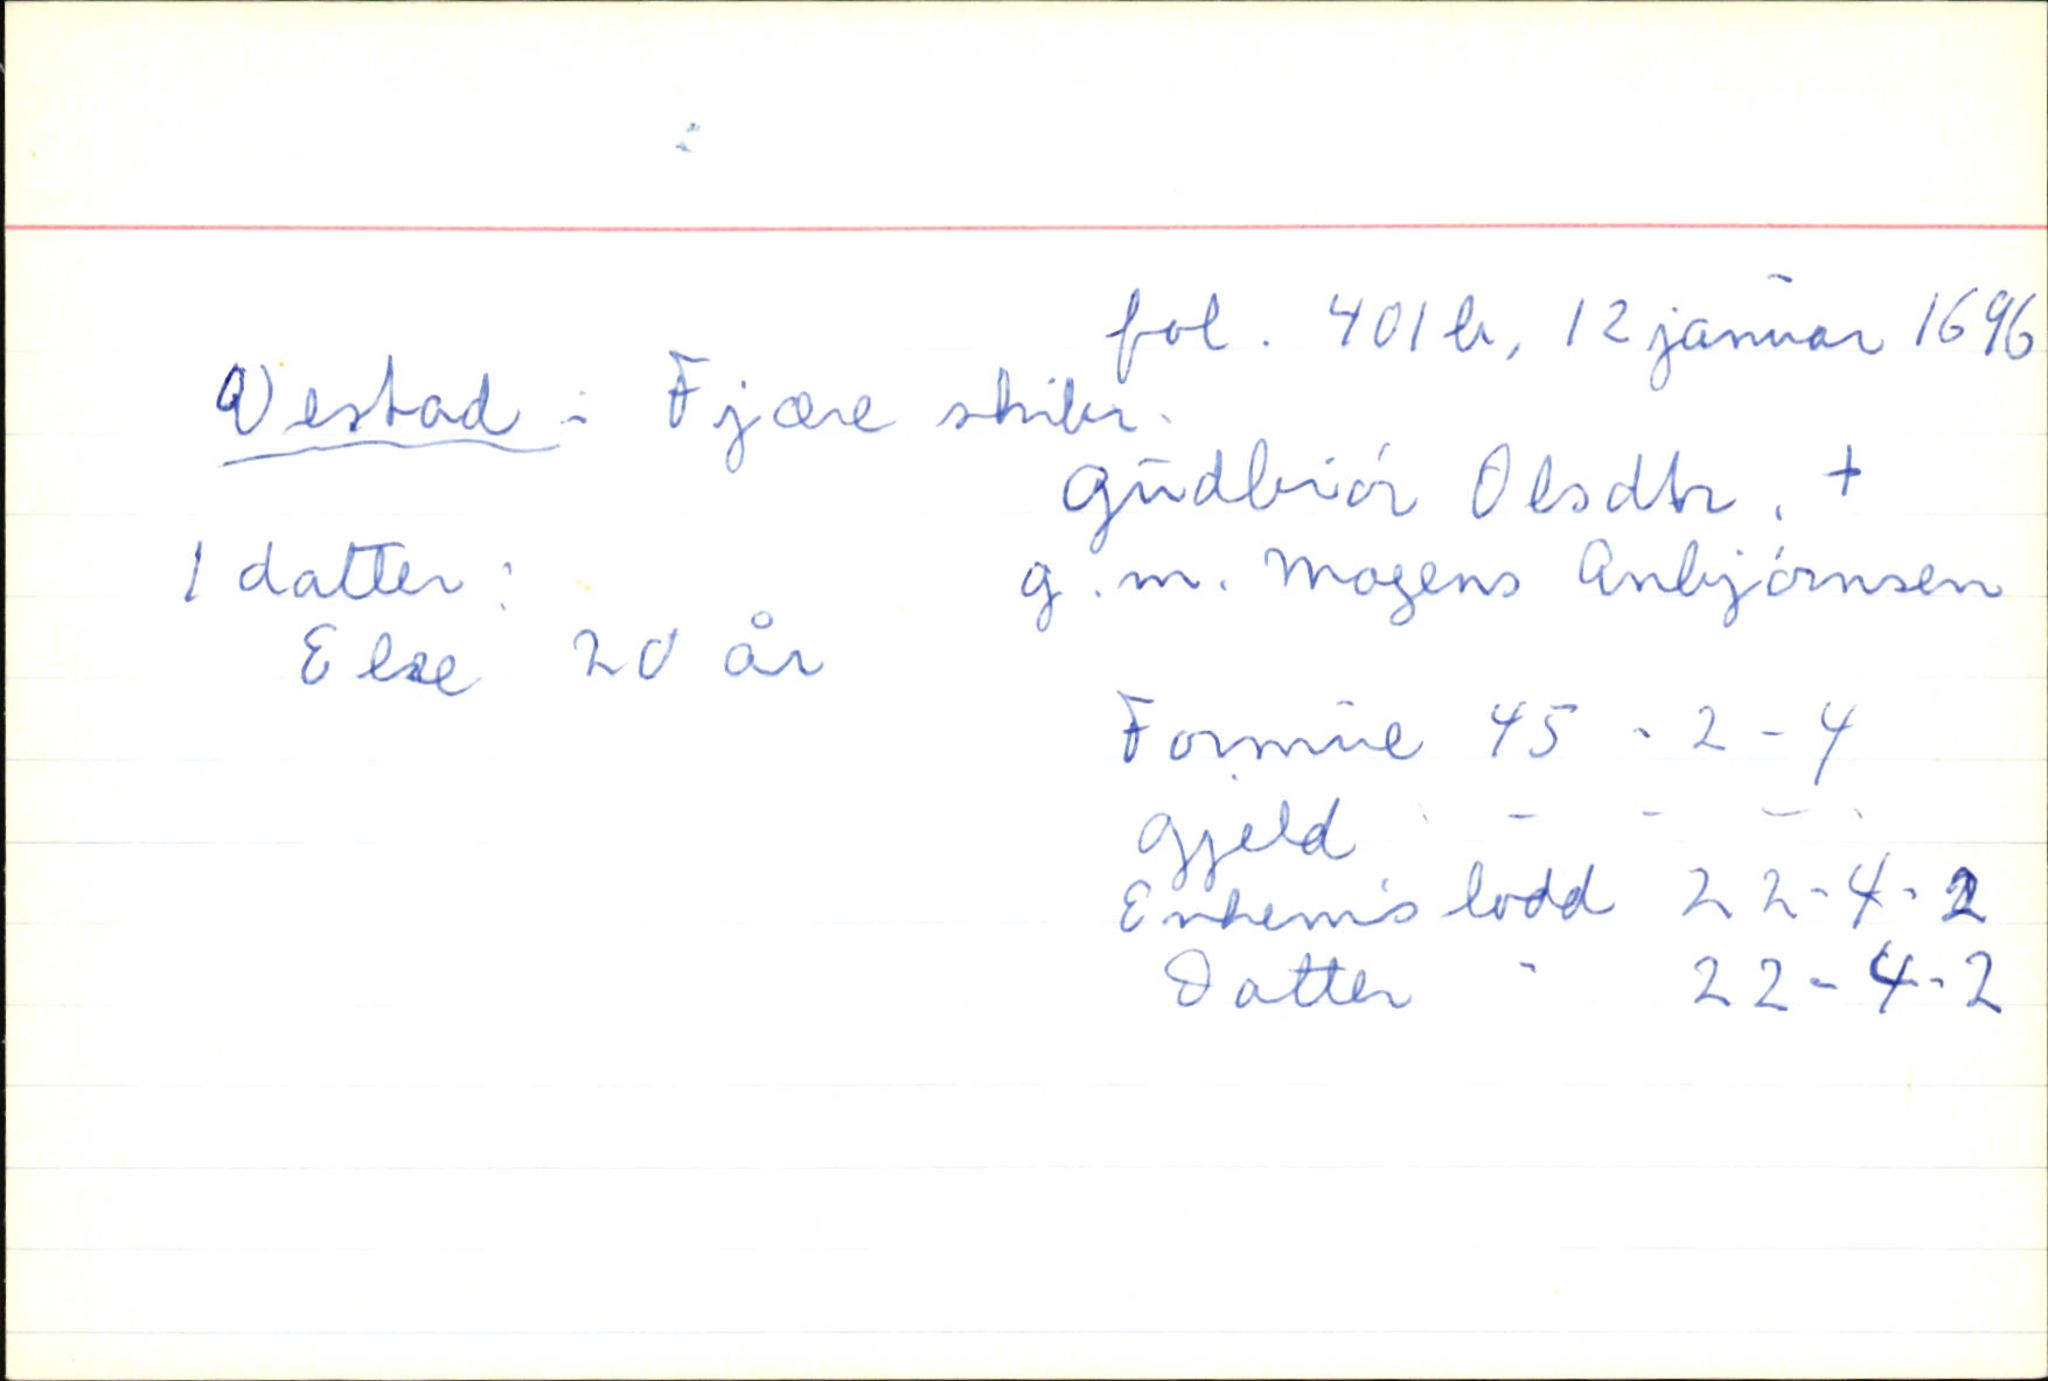 fol. 401 b, 12 januar 1696
Vestad i Fjære skibr.
Gudbiør Olsdtr. +
1 datter: g. m. Mogens Anbjørnsen
Else 20 år
Formue 45 - 2 - 4
Gjeld - - -
Enkem's lodd 22-4-2
Datter " 22-4-2